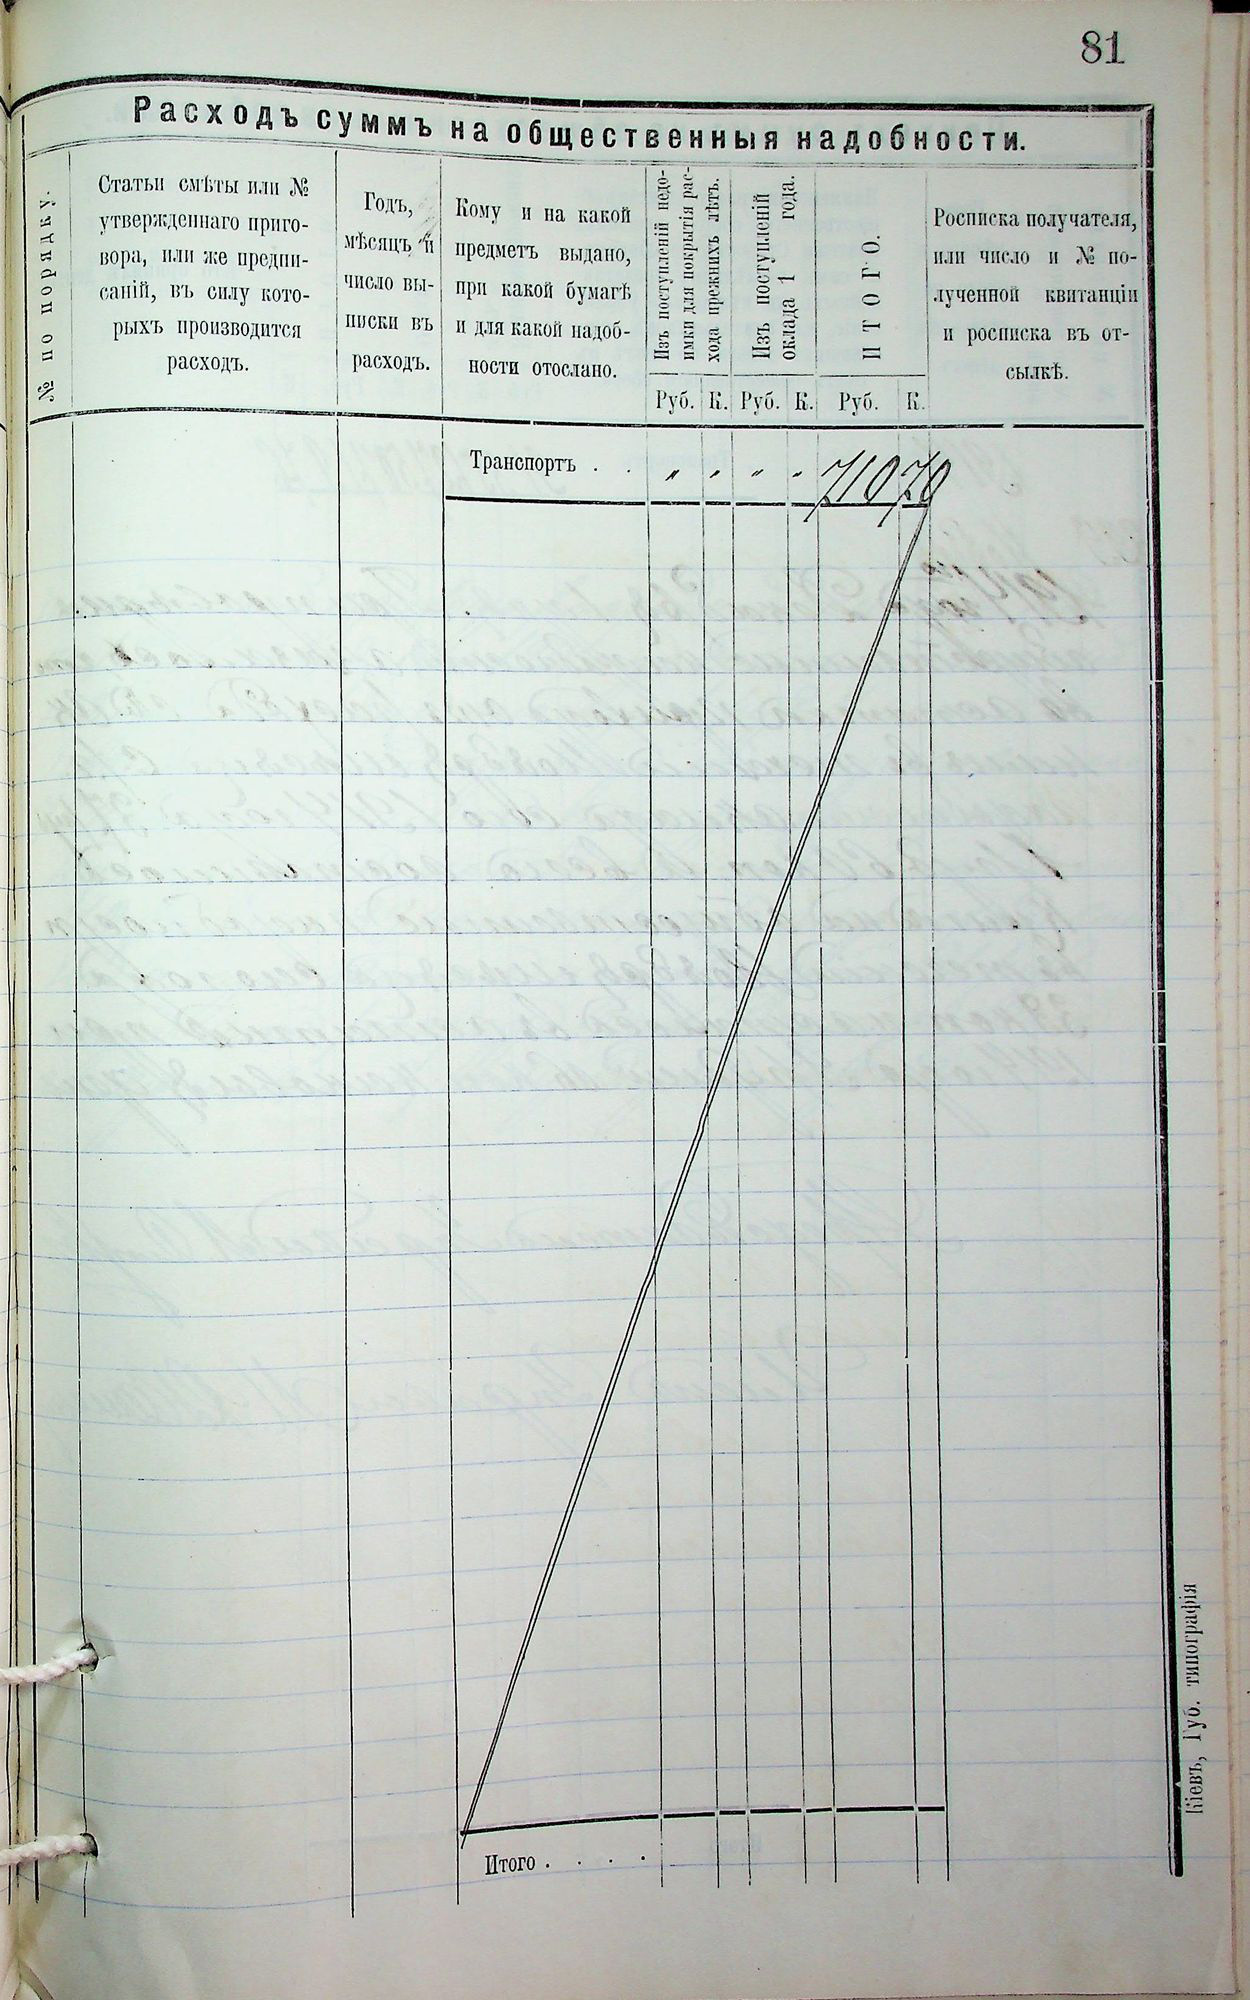 81
Расходъ суммъ на общественныя надобности.
№ по порядку.
Статьи смѣты или №
утвержденнаго приго-
вора, или же предпи-
саній, въ силу кото-
рыхъ производится
расходъ.
Годъ,
мѣсяцъ и
число вы-
писки въ
расходъ.
Кому и на какой
предметъ выдано,
при какой бумагѣ
и для какой надоб-
ности отослано.
Изъ поступленій недо-
имки для покрытія рас-
хода прежнихъ лѣтъ.
Изъ поступленій
оклада 1 года.
ИТОГО.
Росписка получателя,
или число и № по-
лученной квитанціи
и росписка въ от-
сылкѣ.
Руб. К. Руб. К. Руб. К.
Транспортъ . . „ „ „ „ 710 70
Итого . . . .
Кіевъ, Губ. типографія